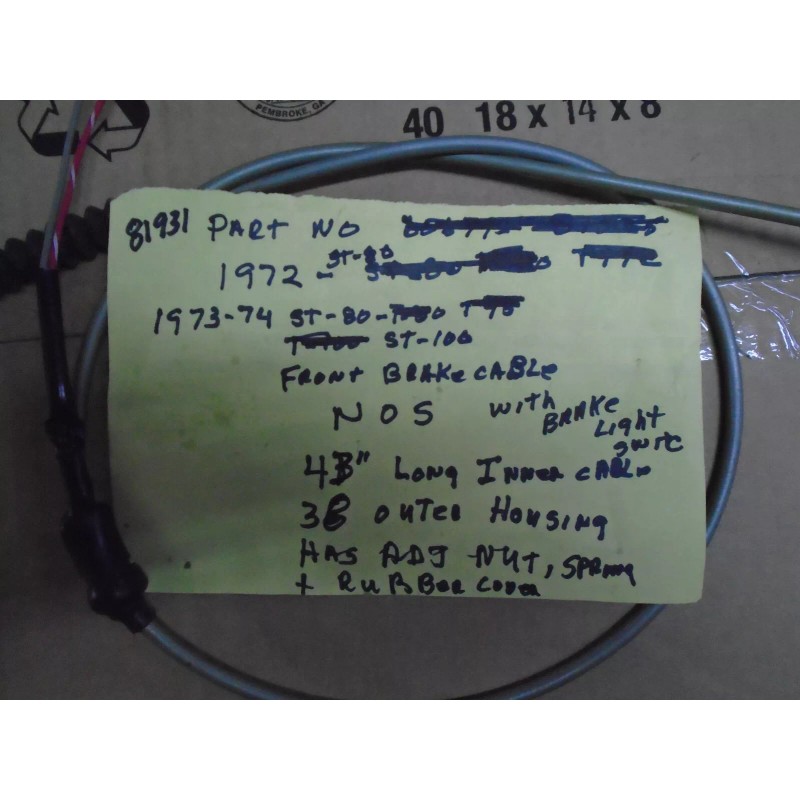 PEMBROKE, GA
40 18 x 14 x 8
81931 PART NO
1972 - ST-80
1973-74 ST-80-
ST-100
FRONT BRAKE CABLE
NOS with BRAKE Light
LONG INNER CABLE
OUTER HOUSING
HAS ADJ NUT, SPRING
+ RUBBER COVER